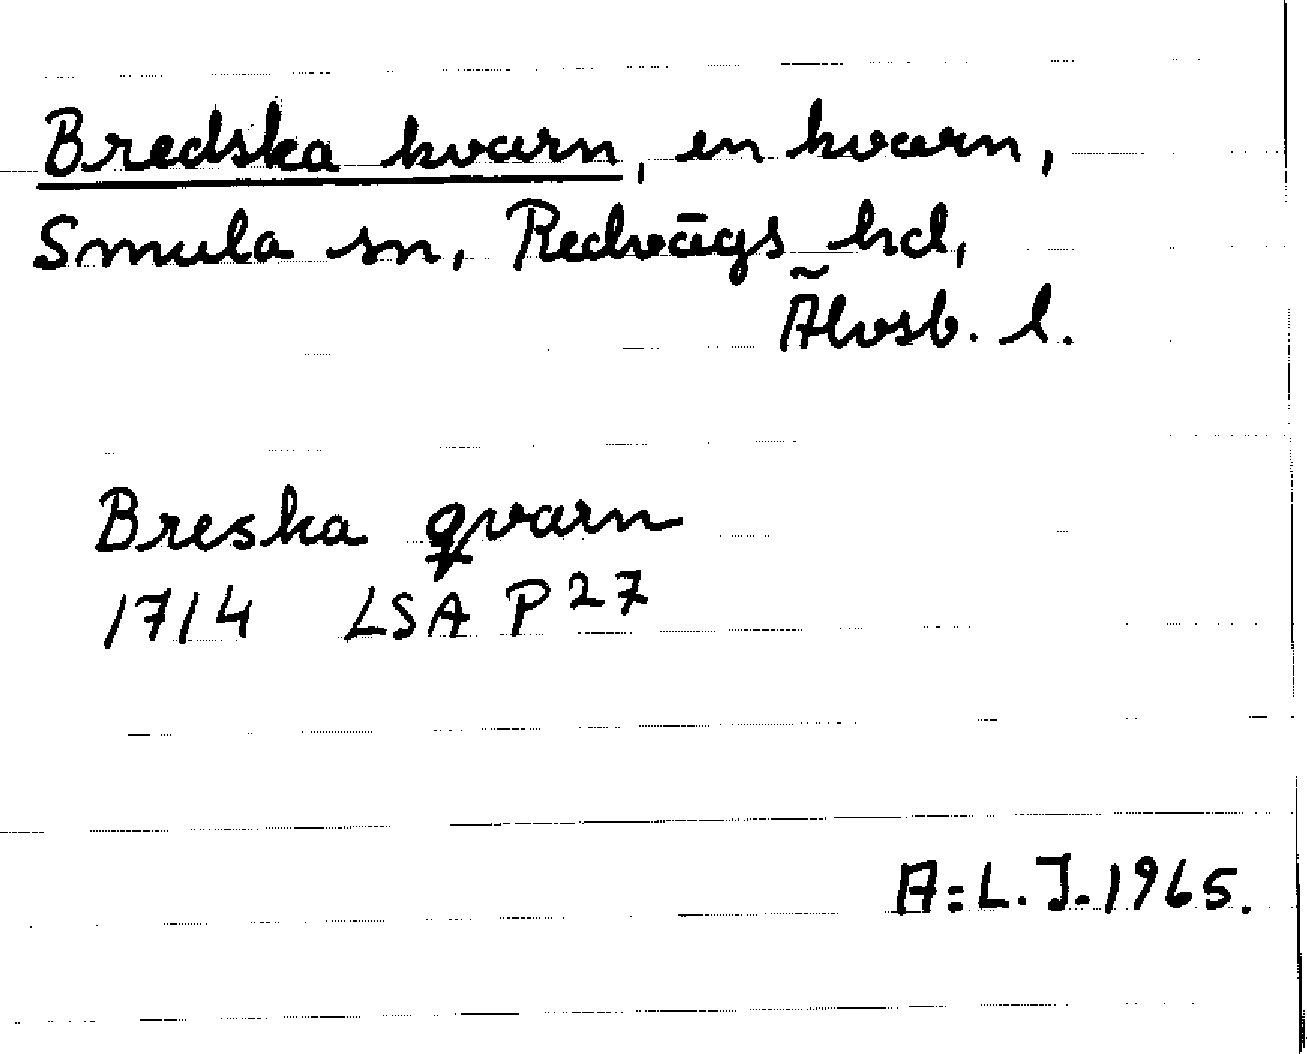 Bredska kvarn, en kvarn,
Smula sn, Redvägs hd,
Älvsb. l.
Breska qvarn
1714 LSA P 27
A:L.J. 1965.